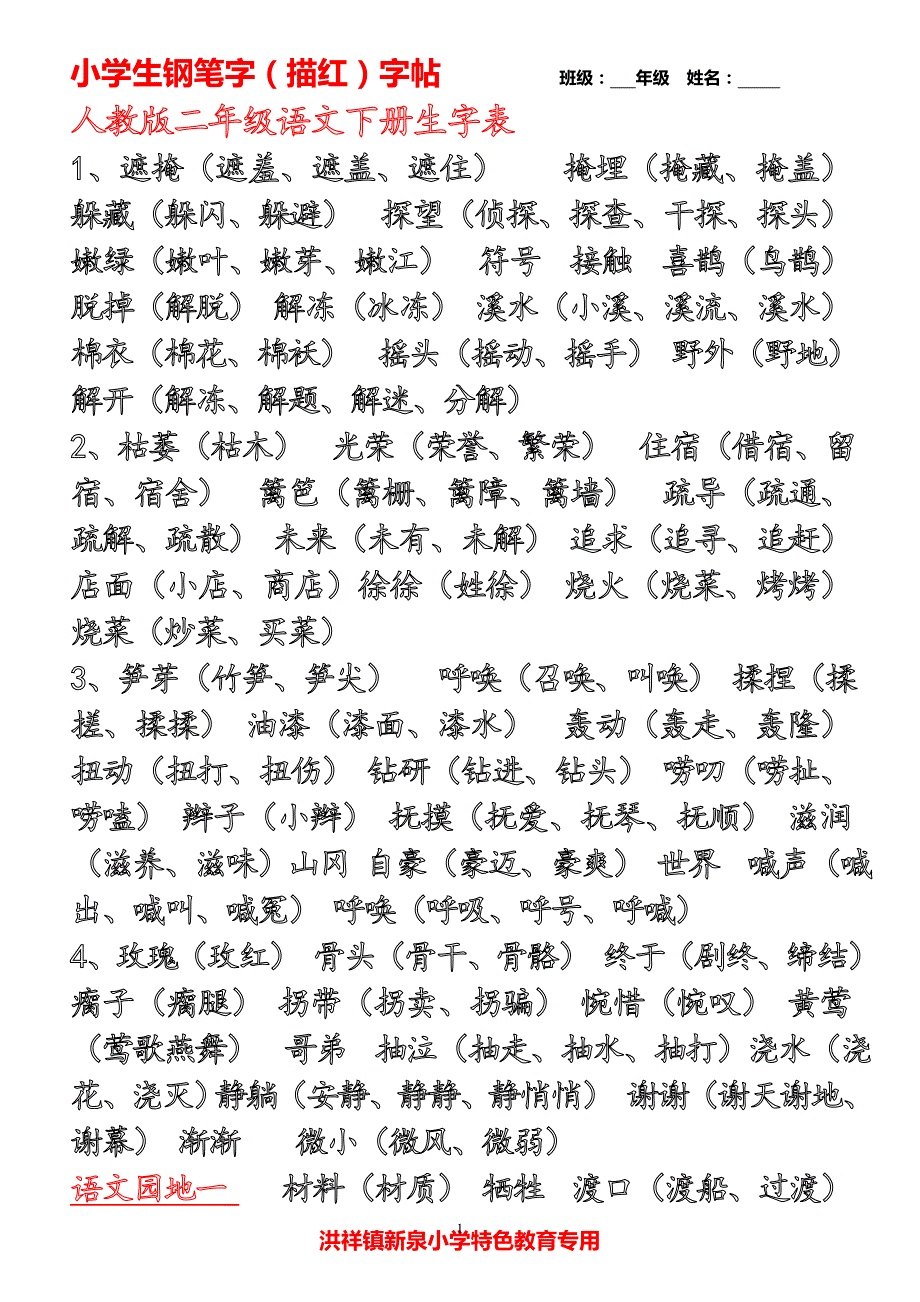 小学生钢笔字（描红）字帖 班级：___年级 姓名：_____
人教版二年级语文下册生字表
1、遮掩（遮羞、遮盖、遮住） 掩埋（掩藏、掩盖）
躲藏（躲闪、躲避） 探望（侦探、探查、干探、探头）
嫩绿（嫩叶、嫩芽、嫩江） 符号 接触 喜鹊（鸟鹊）
脱掉（解脱） 解冻（冰冻） 溪水（小溪、溪流、溪水）
棉衣（棉花、棉袄） 摇头（摇动、摇手） 野外（野地）
解开（解冻、解题、解迷、分解）
2、枯萎（枯木） 光荣（荣誉、繁荣） 住宿（借宿、留
宿、宿舍） 篱笆（篱栅、篱障、篱墙） 疏导（疏通、
疏解、疏散） 未来（未有、未解） 追求（追寻、追赶）
店面（小店、商店）徐徐（姓徐） 烧火（烧菜、烤烤）
烧菜（炒菜、买菜）
3、笋芽（竹笋、笋尖） 呼唤（召唤、叫唤） 揉捏（揉
搓、揉揉） 油漆（漆面、漆水） 轰动（轰走、轰隆）
扭动（扭打、扭伤） 钻研（钻进、钻头） 唠叨（唠扯、
唠嗑） 辫子（小辫） 抚摸（抚爱、抚琴、抚顺） 滋润
（滋养、滋味）山冈 自豪（豪迈、豪爽） 世界 喊声（喊
出、喊叫、喊冤） 呼唤（呼吸、呼号、呼喊）
4、玫瑰（玫红） 骨头（骨干、骨骼） 终于（剧终、缔结）
瘸子（瘸腿） 拐带（拐卖、拐骗） 惋惜（惋叹） 黄莺
（莺歌燕舞） 哥弟 抽泣（抽走、抽水、抽打）浇水（浇
花、浇灭）静躺（安静、静静、静悄悄） 谢谢（谢天谢地、
谢幕） 渐渐 微小（微风、微弱）
语文园地一 材料（材质） 牺牲 渡口（渡船、过渡）
1
洪祥镇新泉小学特色教育专用